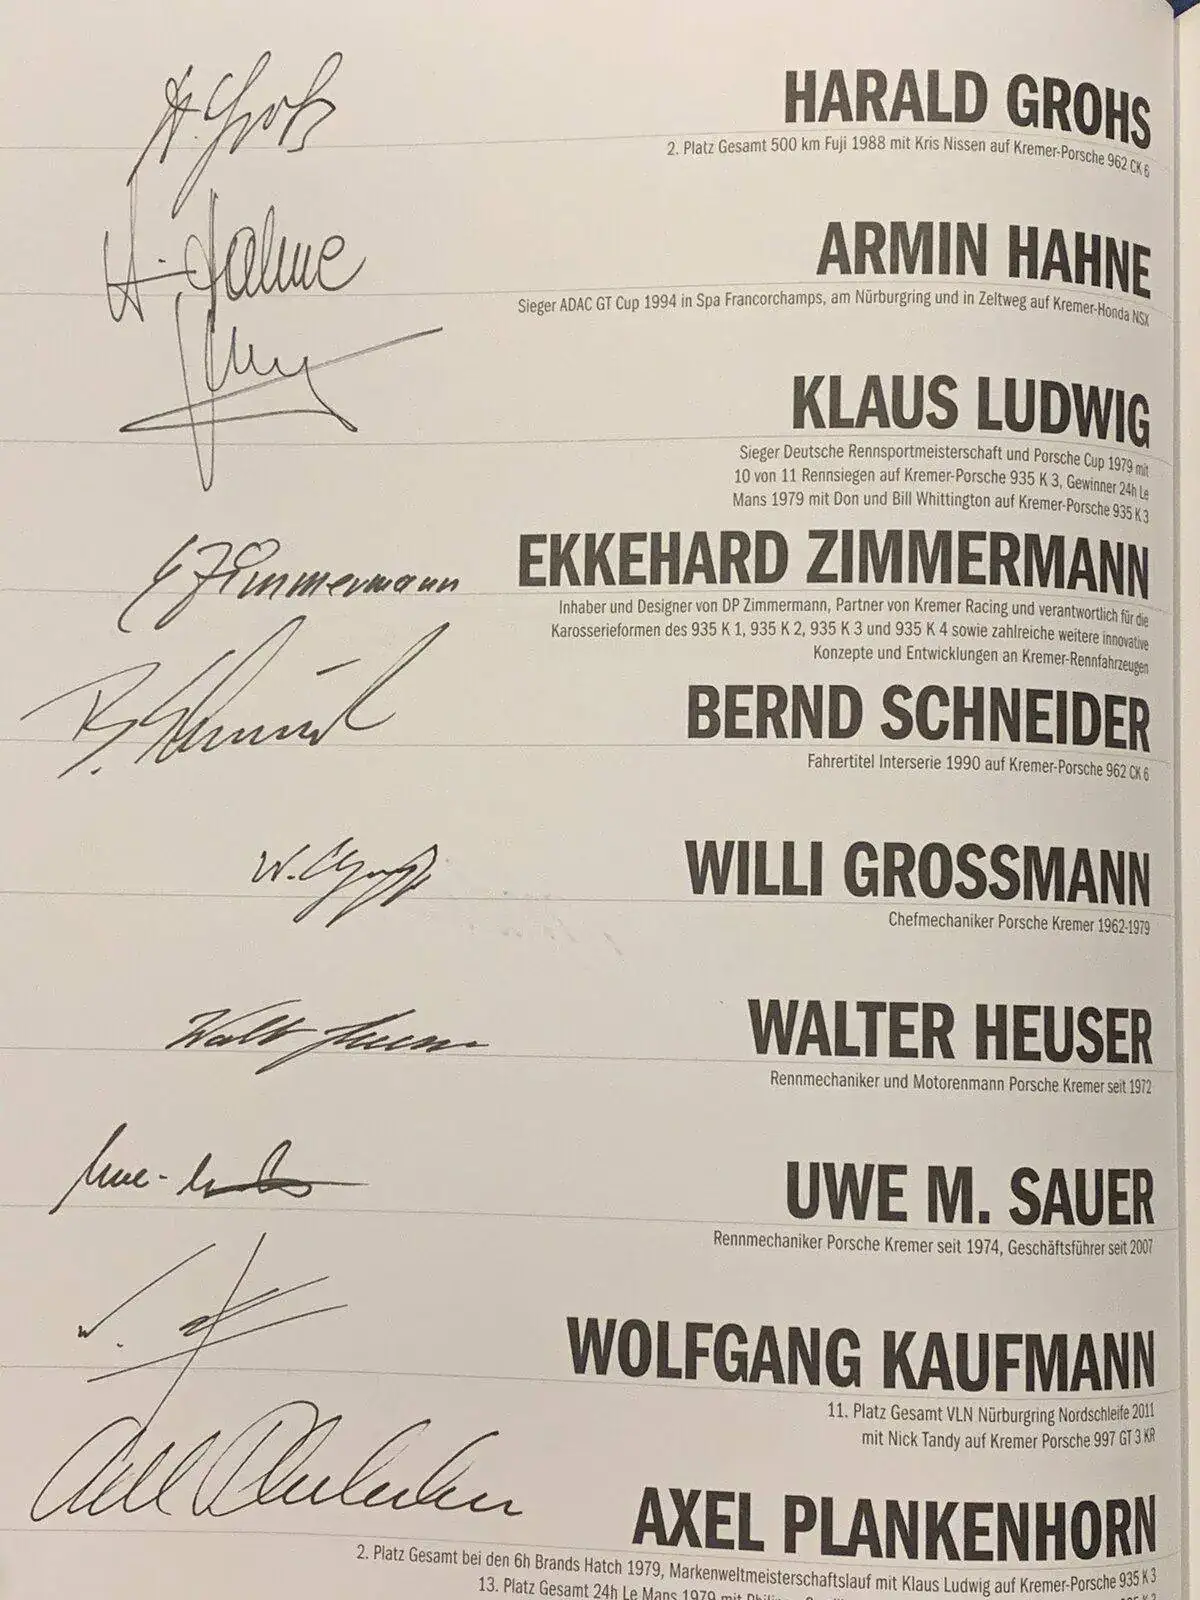 H. Grohs
HARALD GROHS
2. Platz Gesamt 500 km Fuji 1988 mit Kris Nissen auf Kremer-Porsche 962 CK 6
A. Hahne
ARMIN HAHNE
Sieger ADAC GT Cup 1994 in Spa Francorchamps, am Nürburgring und in Zeltweg auf Kremer-Honda NSX
KLAUS LUDWIG
Sieger Deutsche Rennsportmeisterschaft und Porsche Cup 1979 mit
10 von 11 Rennsiegen auf Kremer-Porsche 935 K 3, Gewinner 24h Le
Mans 1979 mit Don und Bill Whittington auf Kremer-Porsche 935 K 3
E Zimmermann
EKKEHARD ZIMMERMANN
Inhaber und Designer von DP Zimmermann, Partner von Kremer Racing und verantwortlich für die
Karosserieformen des 935 K 1, 935 K 2, 935 K 3 und 935 K 4 sowie zahlreiche weitere innovative
Konzepte und Entwicklungen an Kremer-Rennfahrzeugen
BERND SCHNEIDER
Fahrertitel Interserie 1990 auf Kremer-Porsche 962 CK 6
WILLI GROSSMANN
Chefmechaniker Porsche Kremer 1962-1979
WALTER HEUSER
Rennmechaniker und Motorenmann Porsche Kremer seit 1972
UWE M. SAUER
Rennmechaniker Porsche Kremer seit 1974, Geschäftsführer seit 2007
WOLFGANG KAUFMANN
11. Platz Gesamt VLN Nürburgring Nordschleife 2011
mit Nick Tandy auf Kremer Porsche 997 GT 3 KR
AXEL PLANKENHORN
2. Platz Gesamt bei den 6h Brands Hatch 1979, Markenweltmeisterschaftslauf mit Klaus Ludwig auf Kremer-Porsche 935 K 3
13. Platz Gesamt 24h Le Mans 1979 mit